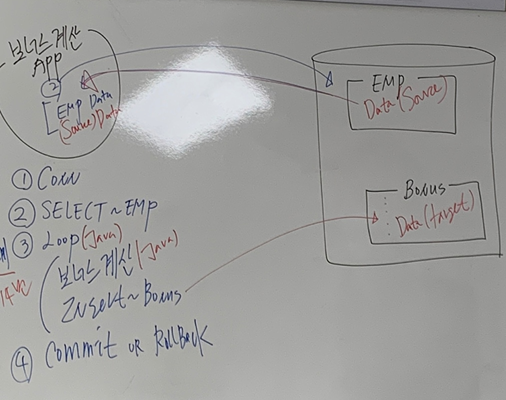 보너스 계산
App
②
EMP Data
(Source) Data
EMP
Data (Source)
Bonus
Data (target)
① Conn
② SELECT ~ EMP
③ Loop (Java)
보너스 계산 (Java)
Insert ~ Bonus
④ Commit or RollBack